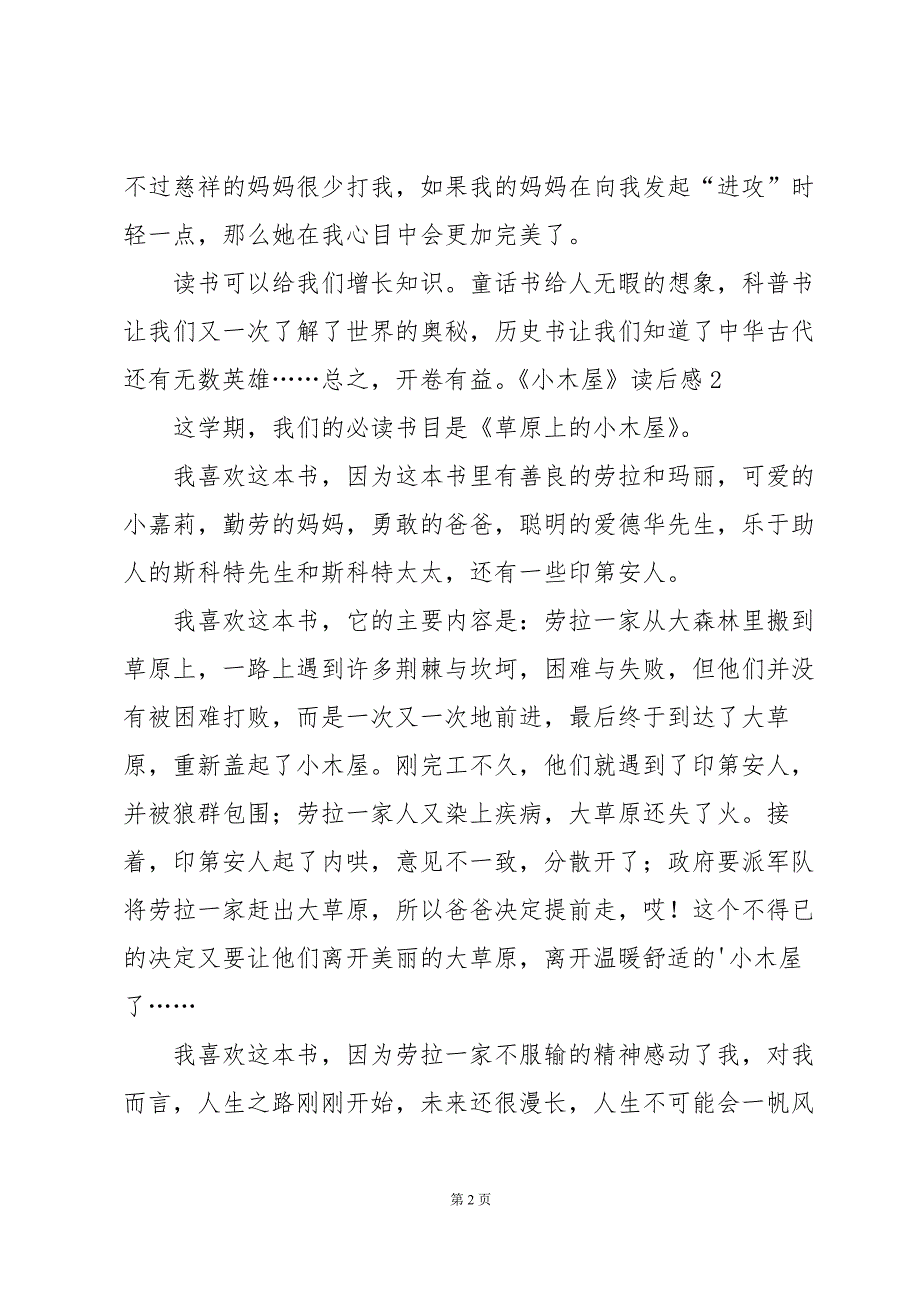 不过慈祥的妈妈很少打我，如果我的妈妈在向我发起“进攻”时
轻一点，那么她在我心目中会更加完美了。
读书可以给我们增长知识。童话书给人无暇的想象，科普书
让我们又一次了解了世界的奥秘，历史书让我们知道了中华古代
还有无数英雄……总之，开卷有益。《小木屋》读后感2
这学期，我们的必读书目是《草原上的小木屋》。
我喜欢这本书，因为这本书里有善良的劳拉和玛丽，可爱的
小嘉莉，勤劳的妈妈，勇敢的爸爸，聪明的爱德华先生，乐于助
人的斯科特先生和斯科特太太，还有一些印第安人。
我喜欢这本书，它的主要内容是：劳拉一家从大森林里搬到
草原上，一路上遇到许多荆棘与坎坷，困难与失败，但他们并没
有被困难打败，而是一次又一次地前进，最后终于到达了大草
原，重新盖起了小木屋。刚完工不久，他们就遇到了印第安人，
并被狼群包围；劳拉一家人又染上疾病，大草原还失了火。接
着，印第安人起了内哄，意见不一致，分散开了；政府要派军队
将劳拉一家赶出大草原，所以爸爸决定提前走，哎！这个不得已
的决定又要让他们离开美丽的大草原，离开温暖舒适的'小木屋
了……
我喜欢这本书，因为劳拉一家不服输的精神感动了我，对我
而言，人生之路刚刚开始，未来还很漫长，人生不可能会一帆风
第 2 页